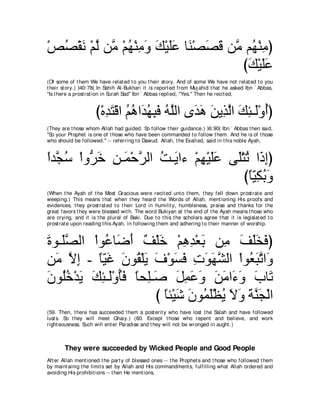 مِنْهُم مَّن قَصَصْنَا عَلَيْكَ وَمِنْهُمْ مَّن لَّمْ نَقْصُصْ
عَلَيْكَ)
(Of some of them We have related to you their story. And of some We have not related to you
their story.) (40:78) In Sahih Al-Bukhari it is reported from Mujahid that he asked Ibn `Abbas,
"Is there a prostration in Surah Sad" Ibn `Abbas replied, "Yes." Then he recited,
(أُوْلَـئِكَ الَّذِينَ هَدَى اللَّهُ فَبِهُدَاهُمُ اقْتَدِهْ)
(They are those whom Allah had guided. So follow their guidance.) (6:90) Ibn `Abbas then said,
"So your Prophet is one of those who have been commanded to follow them. And he is of those
who should be followed." -- referring to Dawud. Allah, the Exalted, said in this noble Ayah,
(إِذَا تُتْلَى عَلَيْهِمْ ءايَـتُ الرَّحْمَـنِ خَرُّواْ سُجَّداً
وَبُكِيّاً)
(When the Ayah of the Most Gracious were recited unto them, they fell down prostrate and
weeping.) This means that when they heard the Words of Allah, mentioning His proofs and
evidences, they prostrated to their Lord in humility, humbleness, praise and thanks for the
great favors they were blessed with. The word Bukiyan at the end of the Ayah means those who
are crying, and it is the plural of Baki. Due to this the scholars agree that it is legislated to
prostrate upon reading this Ayah, in following them and adhering to their manner of worship.
(فَخَلَفَ مِن بَعْدِهِمْ خَلْفٌ أَضَاعُواْ الصَّلَـوةَ
وَاتَّبَعُواْ الشَّهَوَتِ فَسَوْفَ يَلْقُونَ غَيّاً - إِلاَّ مَن
تَابَ وَءَامَنَ وَعَمِلَ صَـلِحاً فَأُوْلَـئِكَ يَدْخُلُونَ
الْجَنَّةَ وَلاَ يُظْلَمُونَ شَيْئاً )
(59. Then, there has succeeded them a posterity who have lost the Salah and have followed
lusts. So they will meet Ghayy.) (60. Except those who repent and believe, and work
righteousness. Such will enter Paradise and they will not be wronged in aught.)
They were succeeded by Wicked People and Good People
After Allah mentioned the party of blessed ones -- the Prophets and those who followed them
by maintaining the limits set by Allah and His commandments, fulfilling what Allah ordered and
avoiding His prohibitions -- then He mentions,